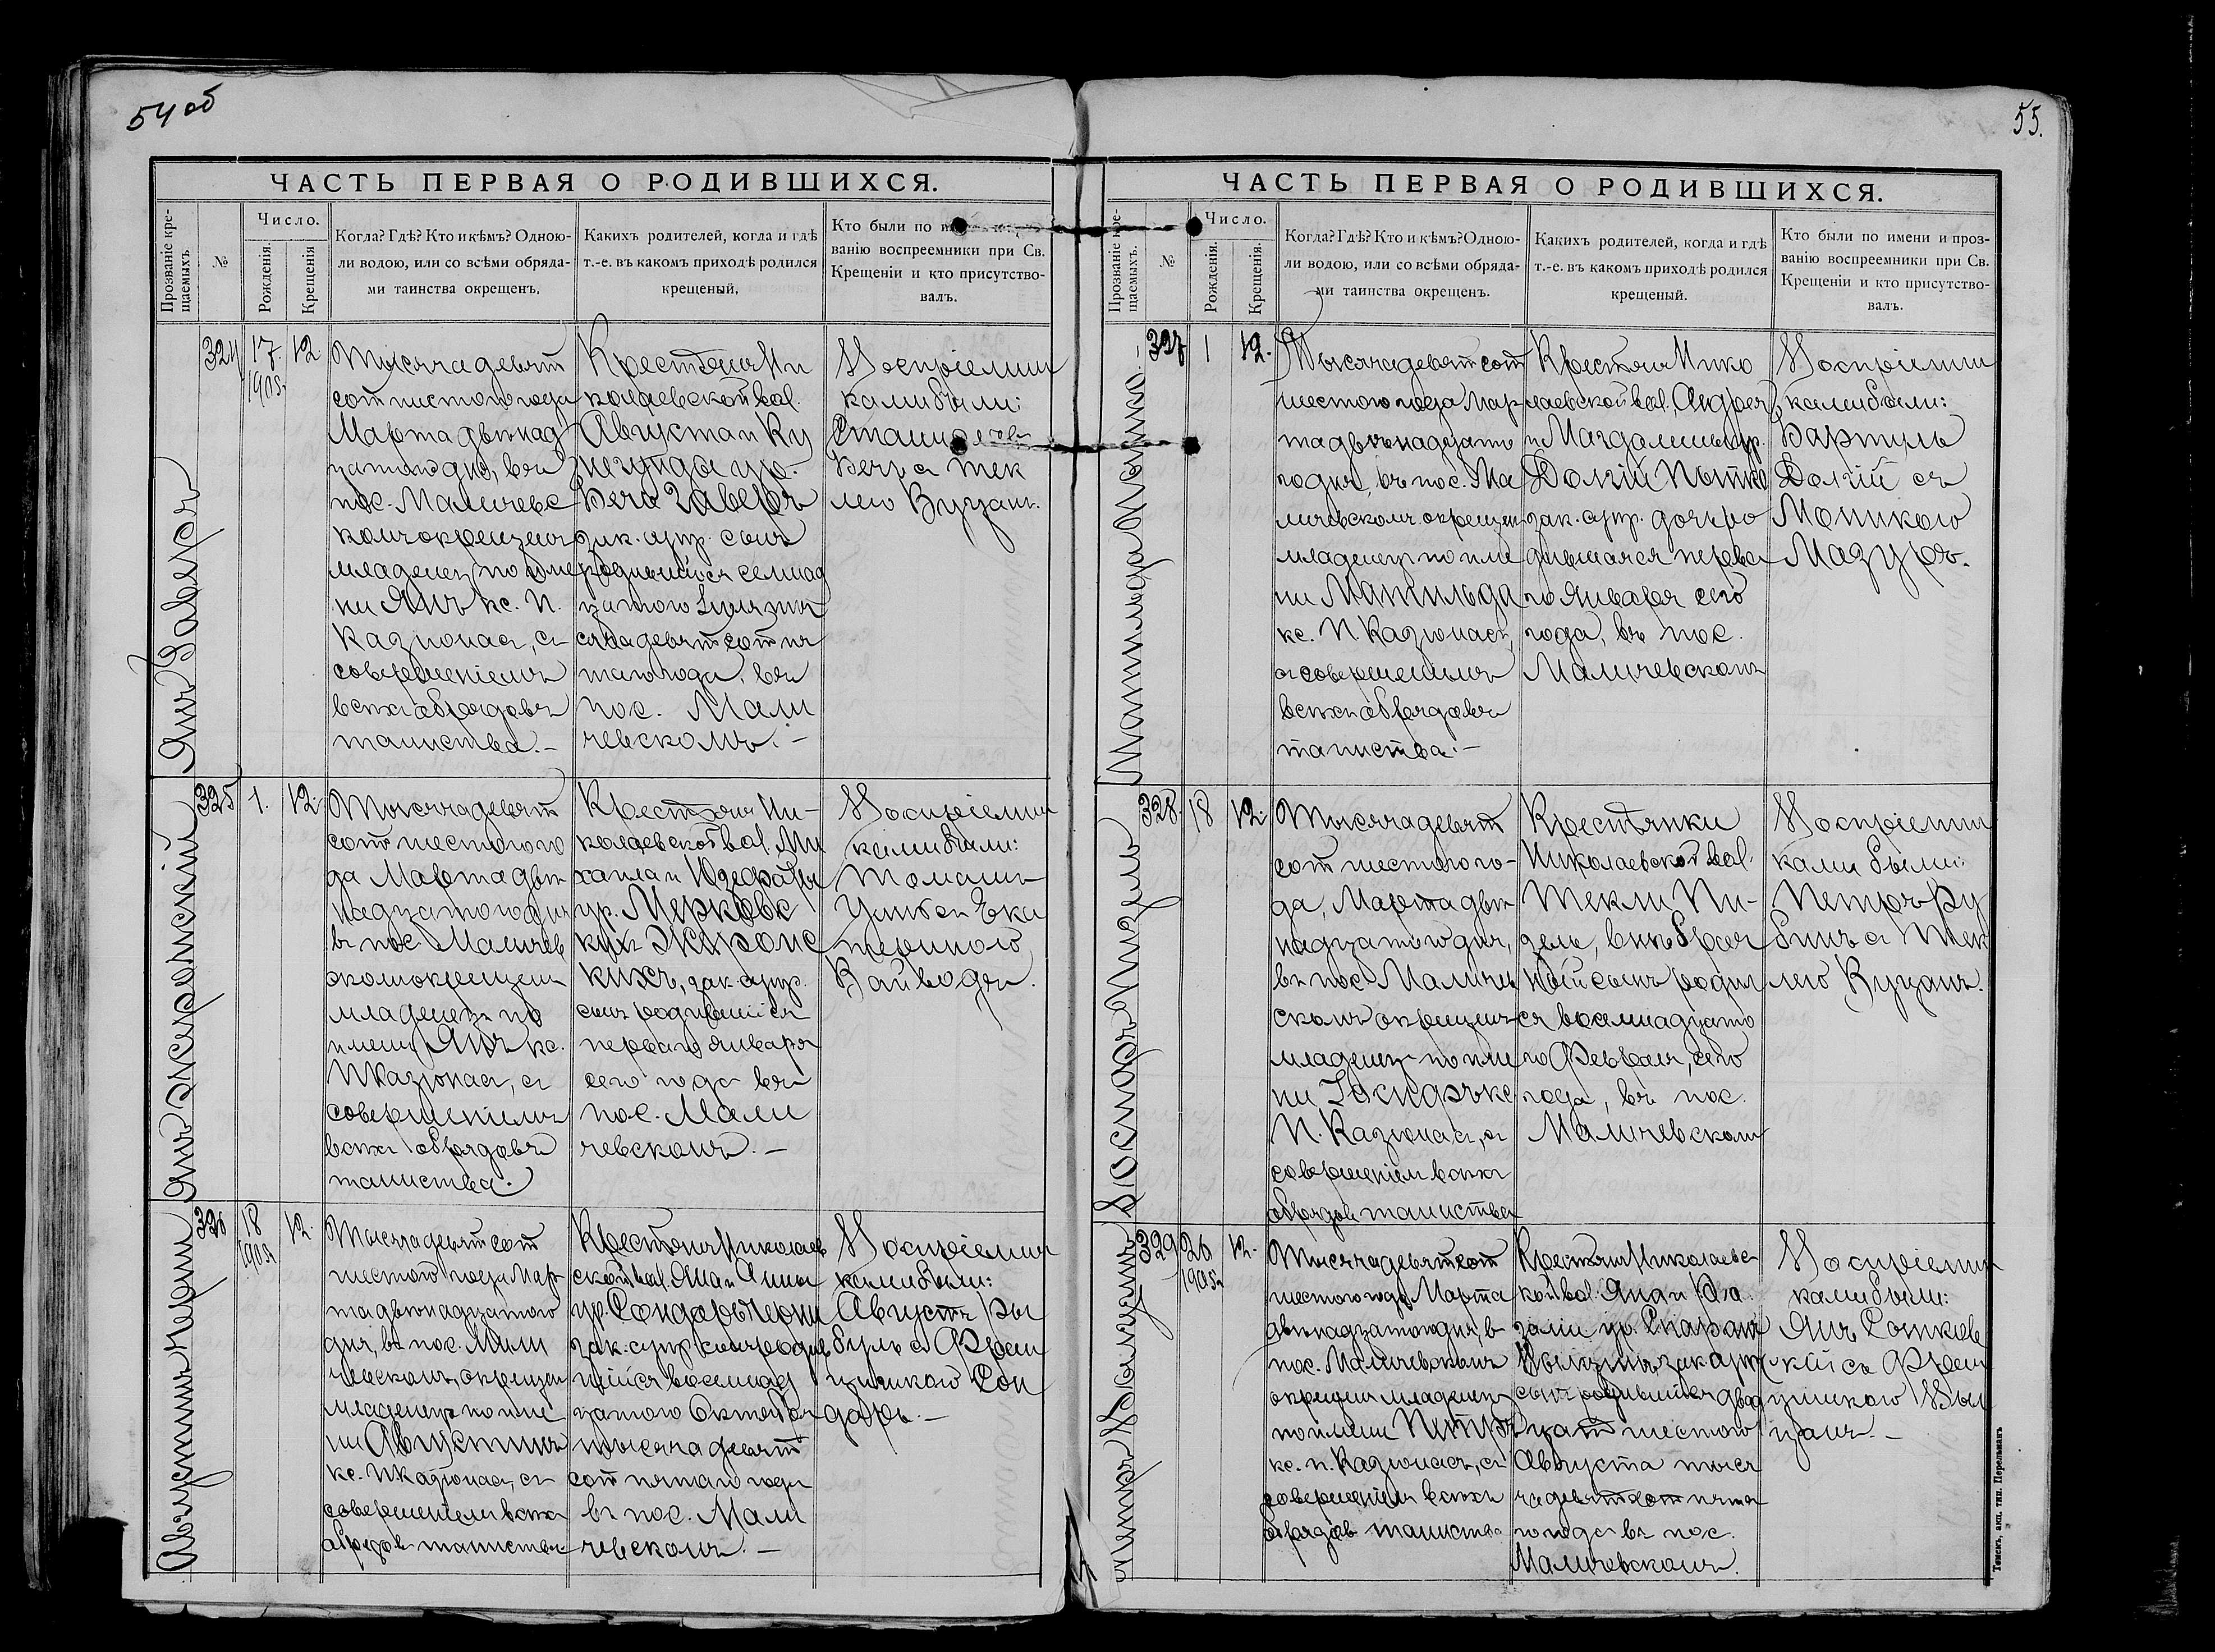 54 об
ЧАСТЬ ПЕРВАЯ О РОДИВШИХСЯ.
Прозваніе кре-
щаемыхъ.
№
Число.
Рожденія.
Крещенія
Когда? Гдѣ? Кто и кѣмъ? Одною-
ли водою, или со всѣми обряда-
ми таинства окрещенъ.
Какихъ родителей, когда и гдѣ
т.-е. въ какомъ приходѣ родился
крещеный.
Кто были по
ванію воспреемники при Св.
Крещеніи и кто присутство-
валъ.
Янъ Гаверъ
324
17.
1905
12
Тысяча девят
сот шестого года
Марта двѣнад
цатого дня, въ
пос. Маличевс
комъ окрещенъ
младенец по име
ни Янъ кс. П.
Казюнасъ, съ
совершеніемъ
всѣхъ обрядовъ
таинства.–
Крестьянъ Ни
колаевской вол.
Августа и Ку
негунда ур.
Гаверъ
зак. супр. сынъ
родившійся семнад
цатого
сяча девятсот пя
таго года, въ
пос. Мали
чевскомъ.–
Воспріемни
ками были:
съ Тек
лею Вуцанъ.
Янъ Экеронскій
325
1.
12.
Тысяча девят
сот шестого го
да Марта двѣ
надцатого дня
въ пос. Маличев
скомъ окрещен
младенецъ по
имени Янъ кс.
П Казюнасъ, съ
совершеніемъ
всѣхъ обрядовъ
таинства.
Крестьянъ Ни-
колаевской вол. Ми
хаила и Юзефаты
ур.
зак. супр.
сынъ родившійся
перваго января
сего года въ
пос. Мали
чевскомъ.–
Воспріемни
ками были:
Томашъ
съ Ека
териною
Вайводъ.
Августинъ
326
18
1905
12.
Тысяча девятсот
шестого года Мар
та двѣнадцатого
дня, въ пос. Мали
чевскомъ, окрещен
младенецъ по име
ни Августинъ
кс. П Казюнасъ, съ
совершеніемъ всѣхъ
обрядовъ таинства
Крестьянъ Николаев
ской вол. Яна и Анны
ур. Сондоръ
зак. супр. сынъ родив
шійся восемнад
цатого Октября
тысяча девят
сот пятаго года
въ пос. Мали
чевскомъ.–
Воспріемни
ками были:
Августъ Ры
буль съ Фран
цишкою Сон
даръ.–
55.
ЧАСТЬ ПЕРВАЯ О РОДИВШИХСЯ.
Прозваніе кре-
щаемыхъ.
№
Число.
Рожденія.
Крещенія.
Когда? Гдѣ? Кто и кѣмъ? Одною-
ли водою, или со всѣми обряда-
ми таинства окрещенъ.
Какихъ родителей, когда и гдѣ
т.-е. въ какомъ приходѣ родился
крещеный.
Кто были по имени и проз-
ванію воспреемники при Св.
Крещеніи и кто присутство-
валъ.
Матильда
327
1
12.
Тысяча девятсот
шестого года Мар
та двѣнадцато
го дня, въ пос. Ма
личевскомъ окрещен
младенец по име
ни Матильда
кс. П. Казюнасъ,
съ совершеніемъ
всѣхъ обрядовъ
таинства.–
Крестьян Нико
лаевской вол. Андрея
и Магдалины ур.
Долгій
зак. супр. дочь ро
дившаяся перва
го Января сего
года, въ пос.
Маличевскомъ
Воспріемни
ками были:
Долгій съ
Моникою
Мазуръ.
328.
18
12.
Тысяча девят
сот шестого го-
да, Марта двѣ
надцатого дня,
въ пос. Маличев
скомъ окрещенъ
младенец по име
ни
П. Казюнасъ, съ
совершеніем всѣхъ
обрядовъ таинства
Крестьянки
Николаевской вол.
Текли Пи-
зель, внѣбрач
ный сынъ родил
ся восемнадцато
го Февраля, сего
года, въ пос.
Маличевскомъ
Воспріемни
ками были:
Петръ Ру
бинъ съ Тек
лею Вуцанъ.
Петръ
329
26
1905
12.
Тысяча девятсот
шестого года Марта
двѣнадцатого дня, въ
пос. Маличевскомъ
окрещен младенецъ
по имени Петръ
кс. П. Казюнасъ, съ
совершеніемъ всѣхъ
обрядовъ таинства
Крестьян Николаевс
кой вол. Яна и Ро
заліи ур.
зак. супр.
сынъ родившійся двад
цать шестого
Августа тыся
ча девятсот пята
го года въ пос.
Маличевскомъ.
Воспріемни
ками были:
Янъ
съ Фран
цишкою
Томскъ, акц. тип. Перельманъ